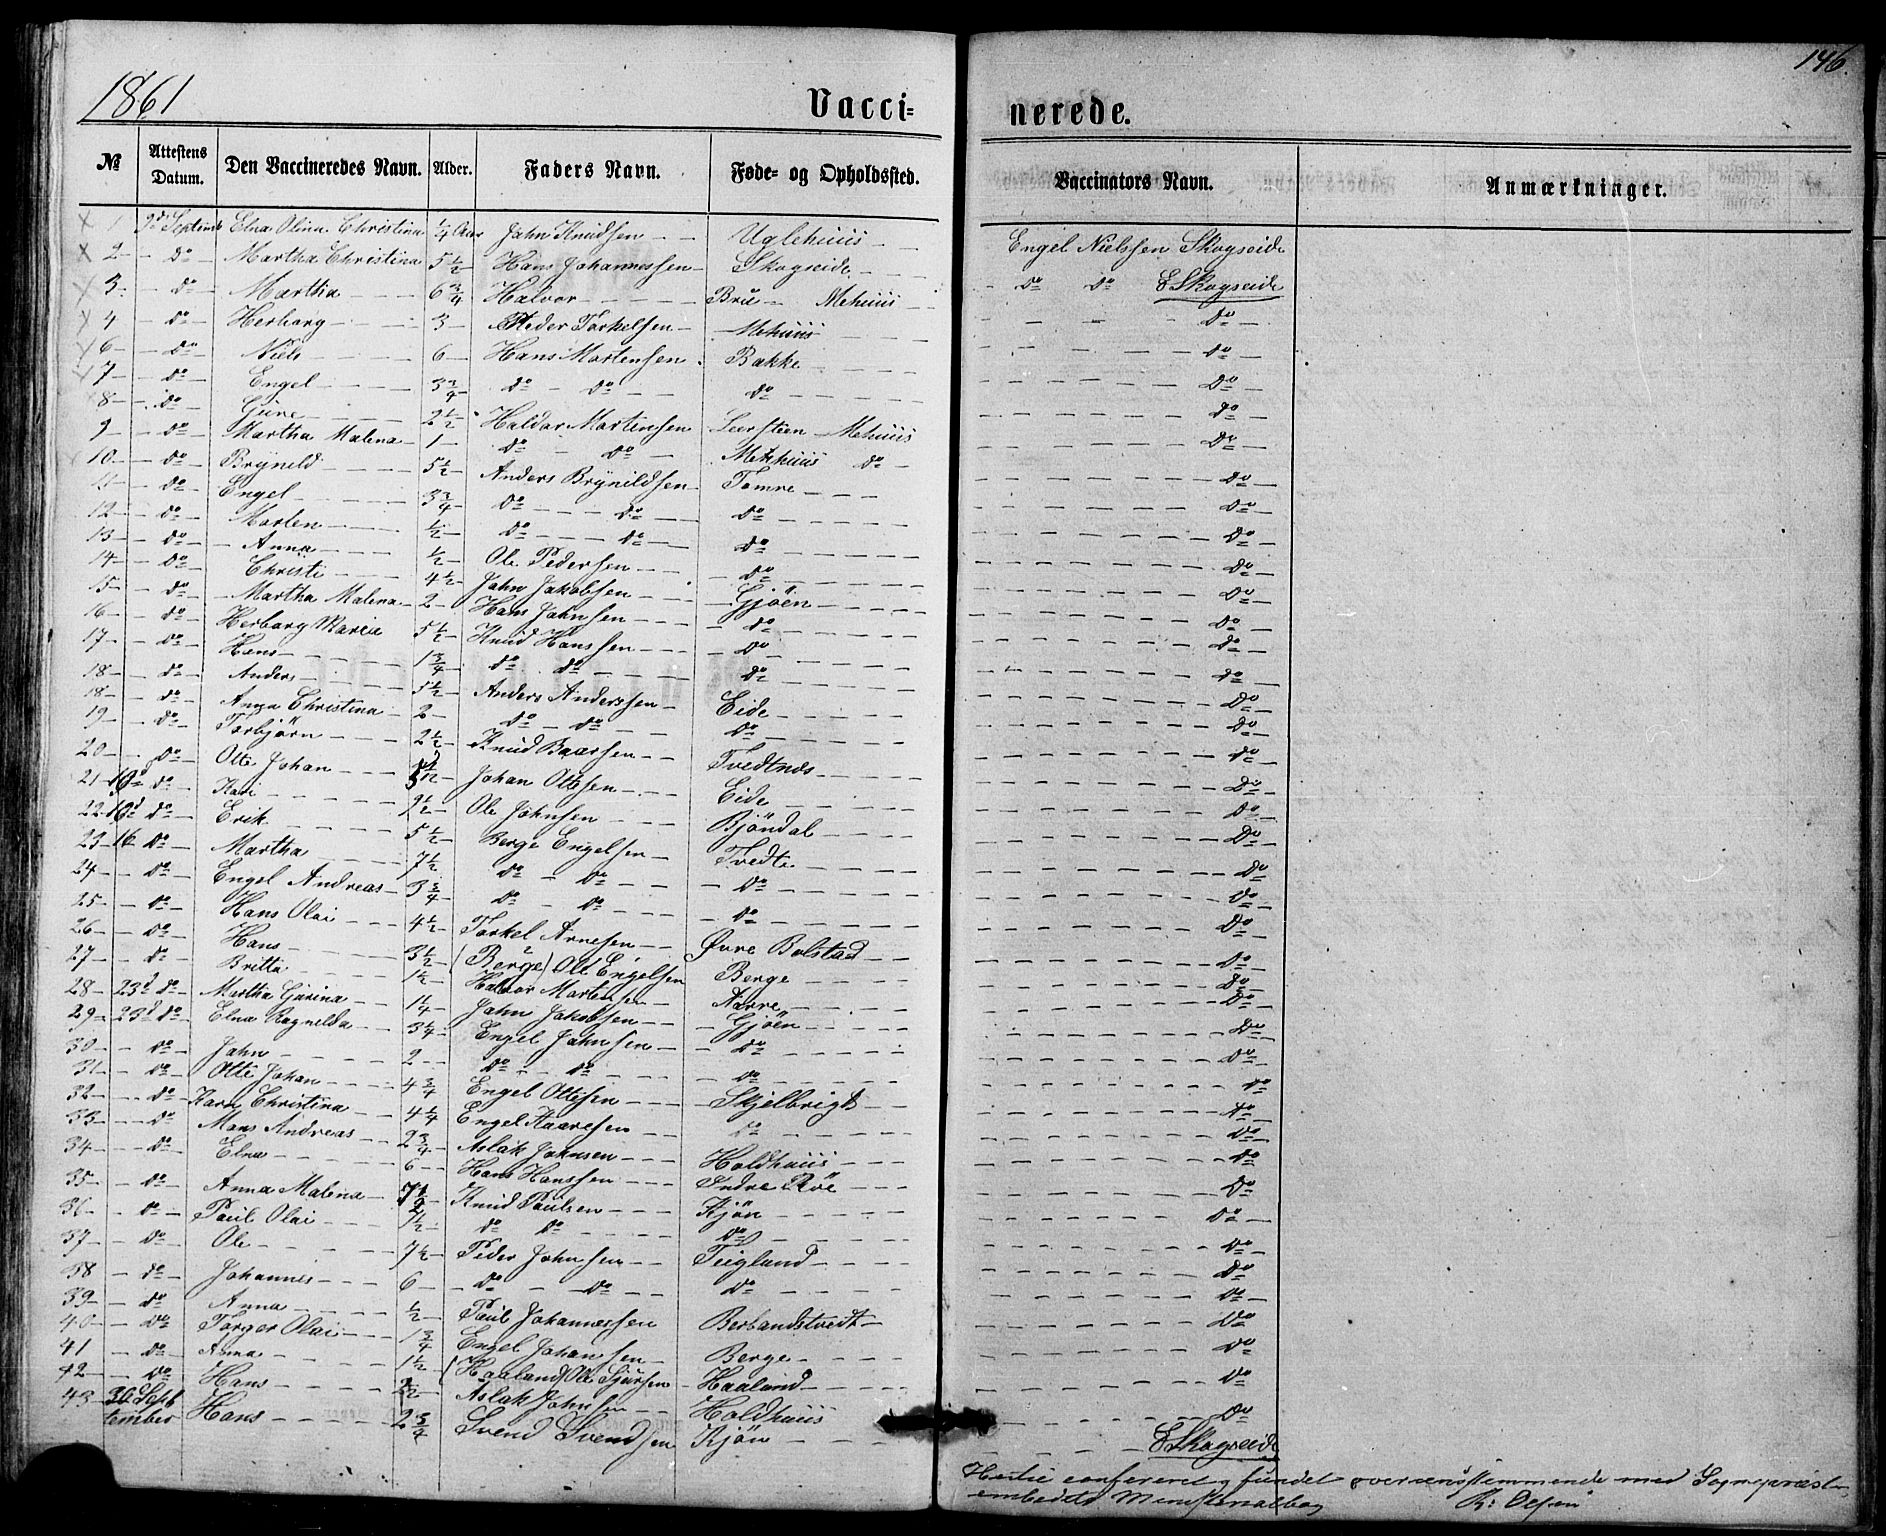 146.
1861
Vaccinerede.
№ Attestens Datum. Den Vaccineredes Navn. Alder. Faders Navn. Føde- og Opholdssted. Vaccinators Navn. Anmærkninger.
1 9d Septemb Elna Olina Christina 1/4 Aar John Knudsen Uglehuus Engel Nielssen Skogseide
2 do Martha Christina 5 1/2 Hans Johannessen Skogseide do do ESkogseide
3 do Martha 6 3/4 Halvor Bru Mehuus Do
4 do Herborg 3 Peder Torkelsen Mehuus do
6 do Niels 6 Hans Mortensen Bakke Do
7 do Engel 3 3/4 do do do do
8 do Gure 2 1/2 Haldor Mortensen Mehuus Do
9 do Martha Malena 1 do do Mehuus do Do
10 do Brynild 5 1/2 Anders Brynildsen Tomre Do
11 do Engel 3 3/4 do do do Do
12 do Morten 1/2 do do do Do
13 do Anna 1/2 Ole Pedersen do Do
14 do Christi 4 1/2 John Jakobsen Gjöen Do
15 do Martha Malena 2 Hans Johnsen do Do
16 do Herborg Maria 5 1/2 Knud Hanssen do Do
17 do Hans 1 3/4 do do do Do
18 do Anders 5 1/2 Anders Anderssen Eide Do
18 do Anna Christina 2 do do do Do
19 do Torbjörn 2 1/2 Knud Baarsen Tvedtnes Do
20 do Otte Johan Johan Ottesen Eide Do
21 do Kari 9 1/2 Ole Johnsen Bjöndal Do
22 do Erik 5 1/2 Berge Engelsen Tvedte Do
23 16 do Martha 7 1/2 do do do Do
24 do Engel Andreas 3 3/4 do do do Do
25 do Hans Olai 4 1/2 Torkel Arnesen Øvre Bolstad Do
26 do Hans 3 1/2 (Berge) Ole Engelsen Berge Do
27 do Britta 1 1/2 Halvor Mortensen Aarre Do
28 23d do Martha Gurina 1 1/4 John Jakobsen Gjöen Do
29 23d do Elna Ragnilda 3 1/4 Engel Johnsen do Do
30 do John 2 do do do Do
31 do Otte Johan 4 3/4 Engel Ottesen Skjelbrigt Do
32 do Kari Christina 4 1/4 Engel Kaaresen do Do
33 do Mons Andreas 2 3/4 Aslak Johnsen Holdhuus Do
34 do Elna 6 Hans Hanssen Indre Röe Do
35 do Anna Malena 7 1/2 Knud Paulsen Kjön Do
36 do Paul Olai 7 1/2 do do do Do
37 do Ole 7 1/2 Peder Johnsen Teigland Do
38 do Johannes 6 do do do Do
39 do Anna 1/2 Paul Johannessen Berlandstvedt Do
40 do Torger Olai 1 3/4 Engel Johansen Berge Do
41 do Anna 1 1/2 (Haaland) Ole Sjursen Haaland Do
42 do Hans 2 1/2 Aslak Johnsen Holdhuus Do
43 30 September Hans 2 3/4 Svend Svendsen Kjön ESkogseide
confereret og fundet overensstemmende med Sogneprest
embedets Ministerialbog R: Olsen